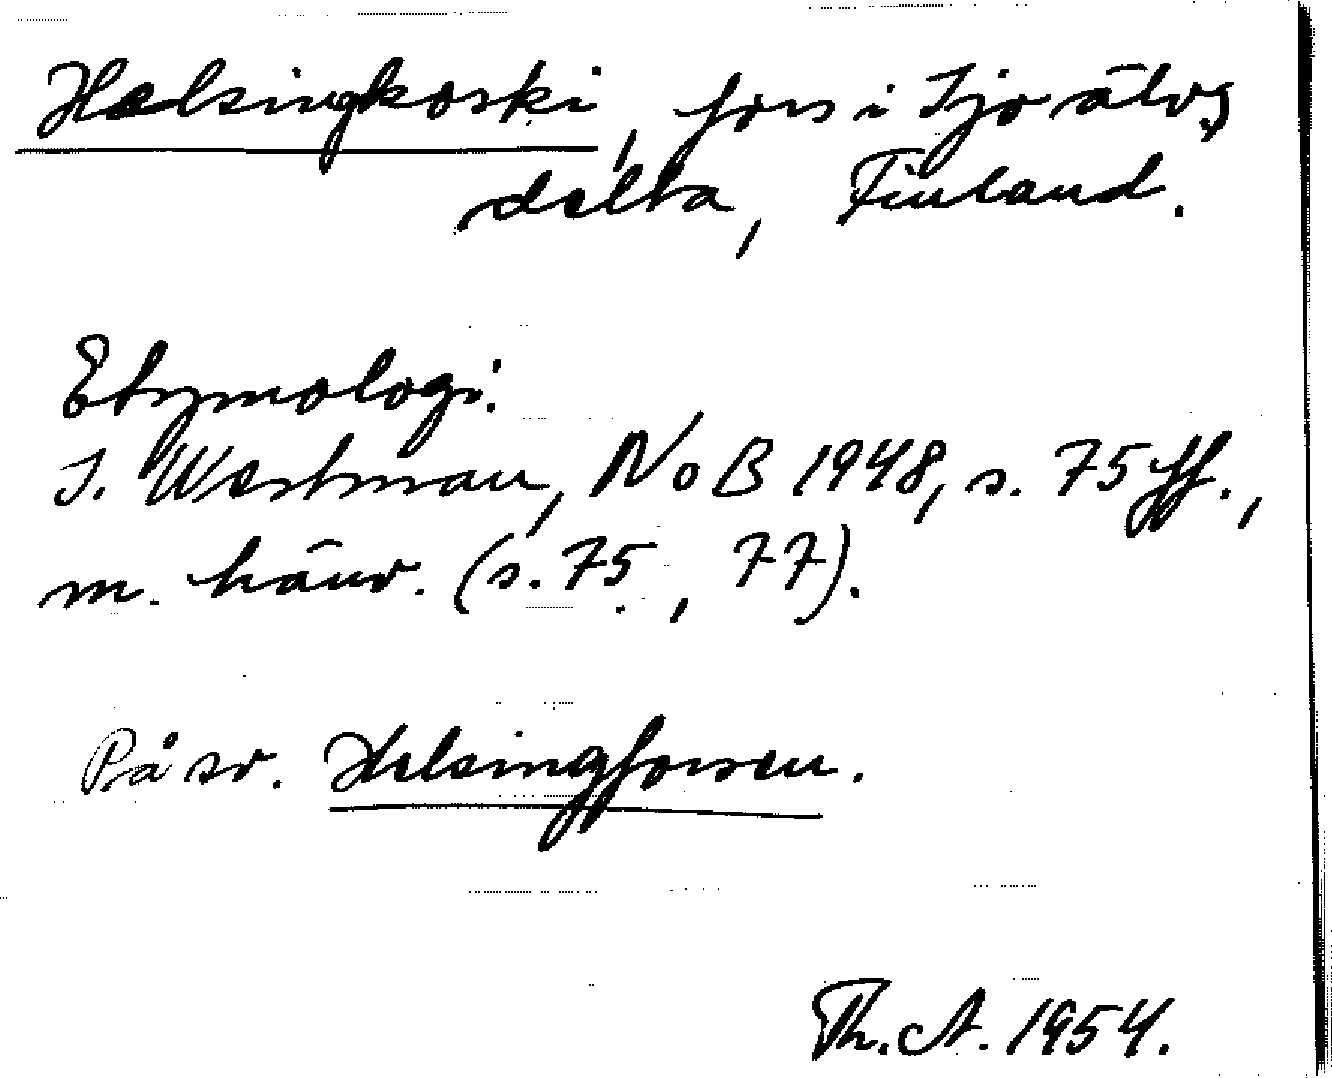 Helsingkoski, fors i Ijo älvs
delta, Finland.
Etymologi:
I. Westman, NoB 1948, s. 75 ff.,
m. hänv. (s. 75, 77).
På sv. Helsingforsen.
Th. A. 1954.